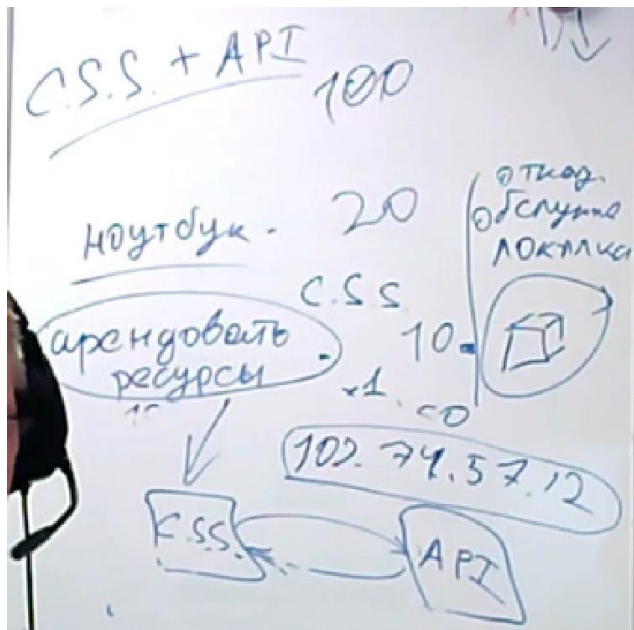 C.S.S. + API
100
ноутбук.
20
отказ.
обслужив
локалка
C.S.S
арендовать
ресурсы
10
×1
102.74.57.12
C.S.S.
API